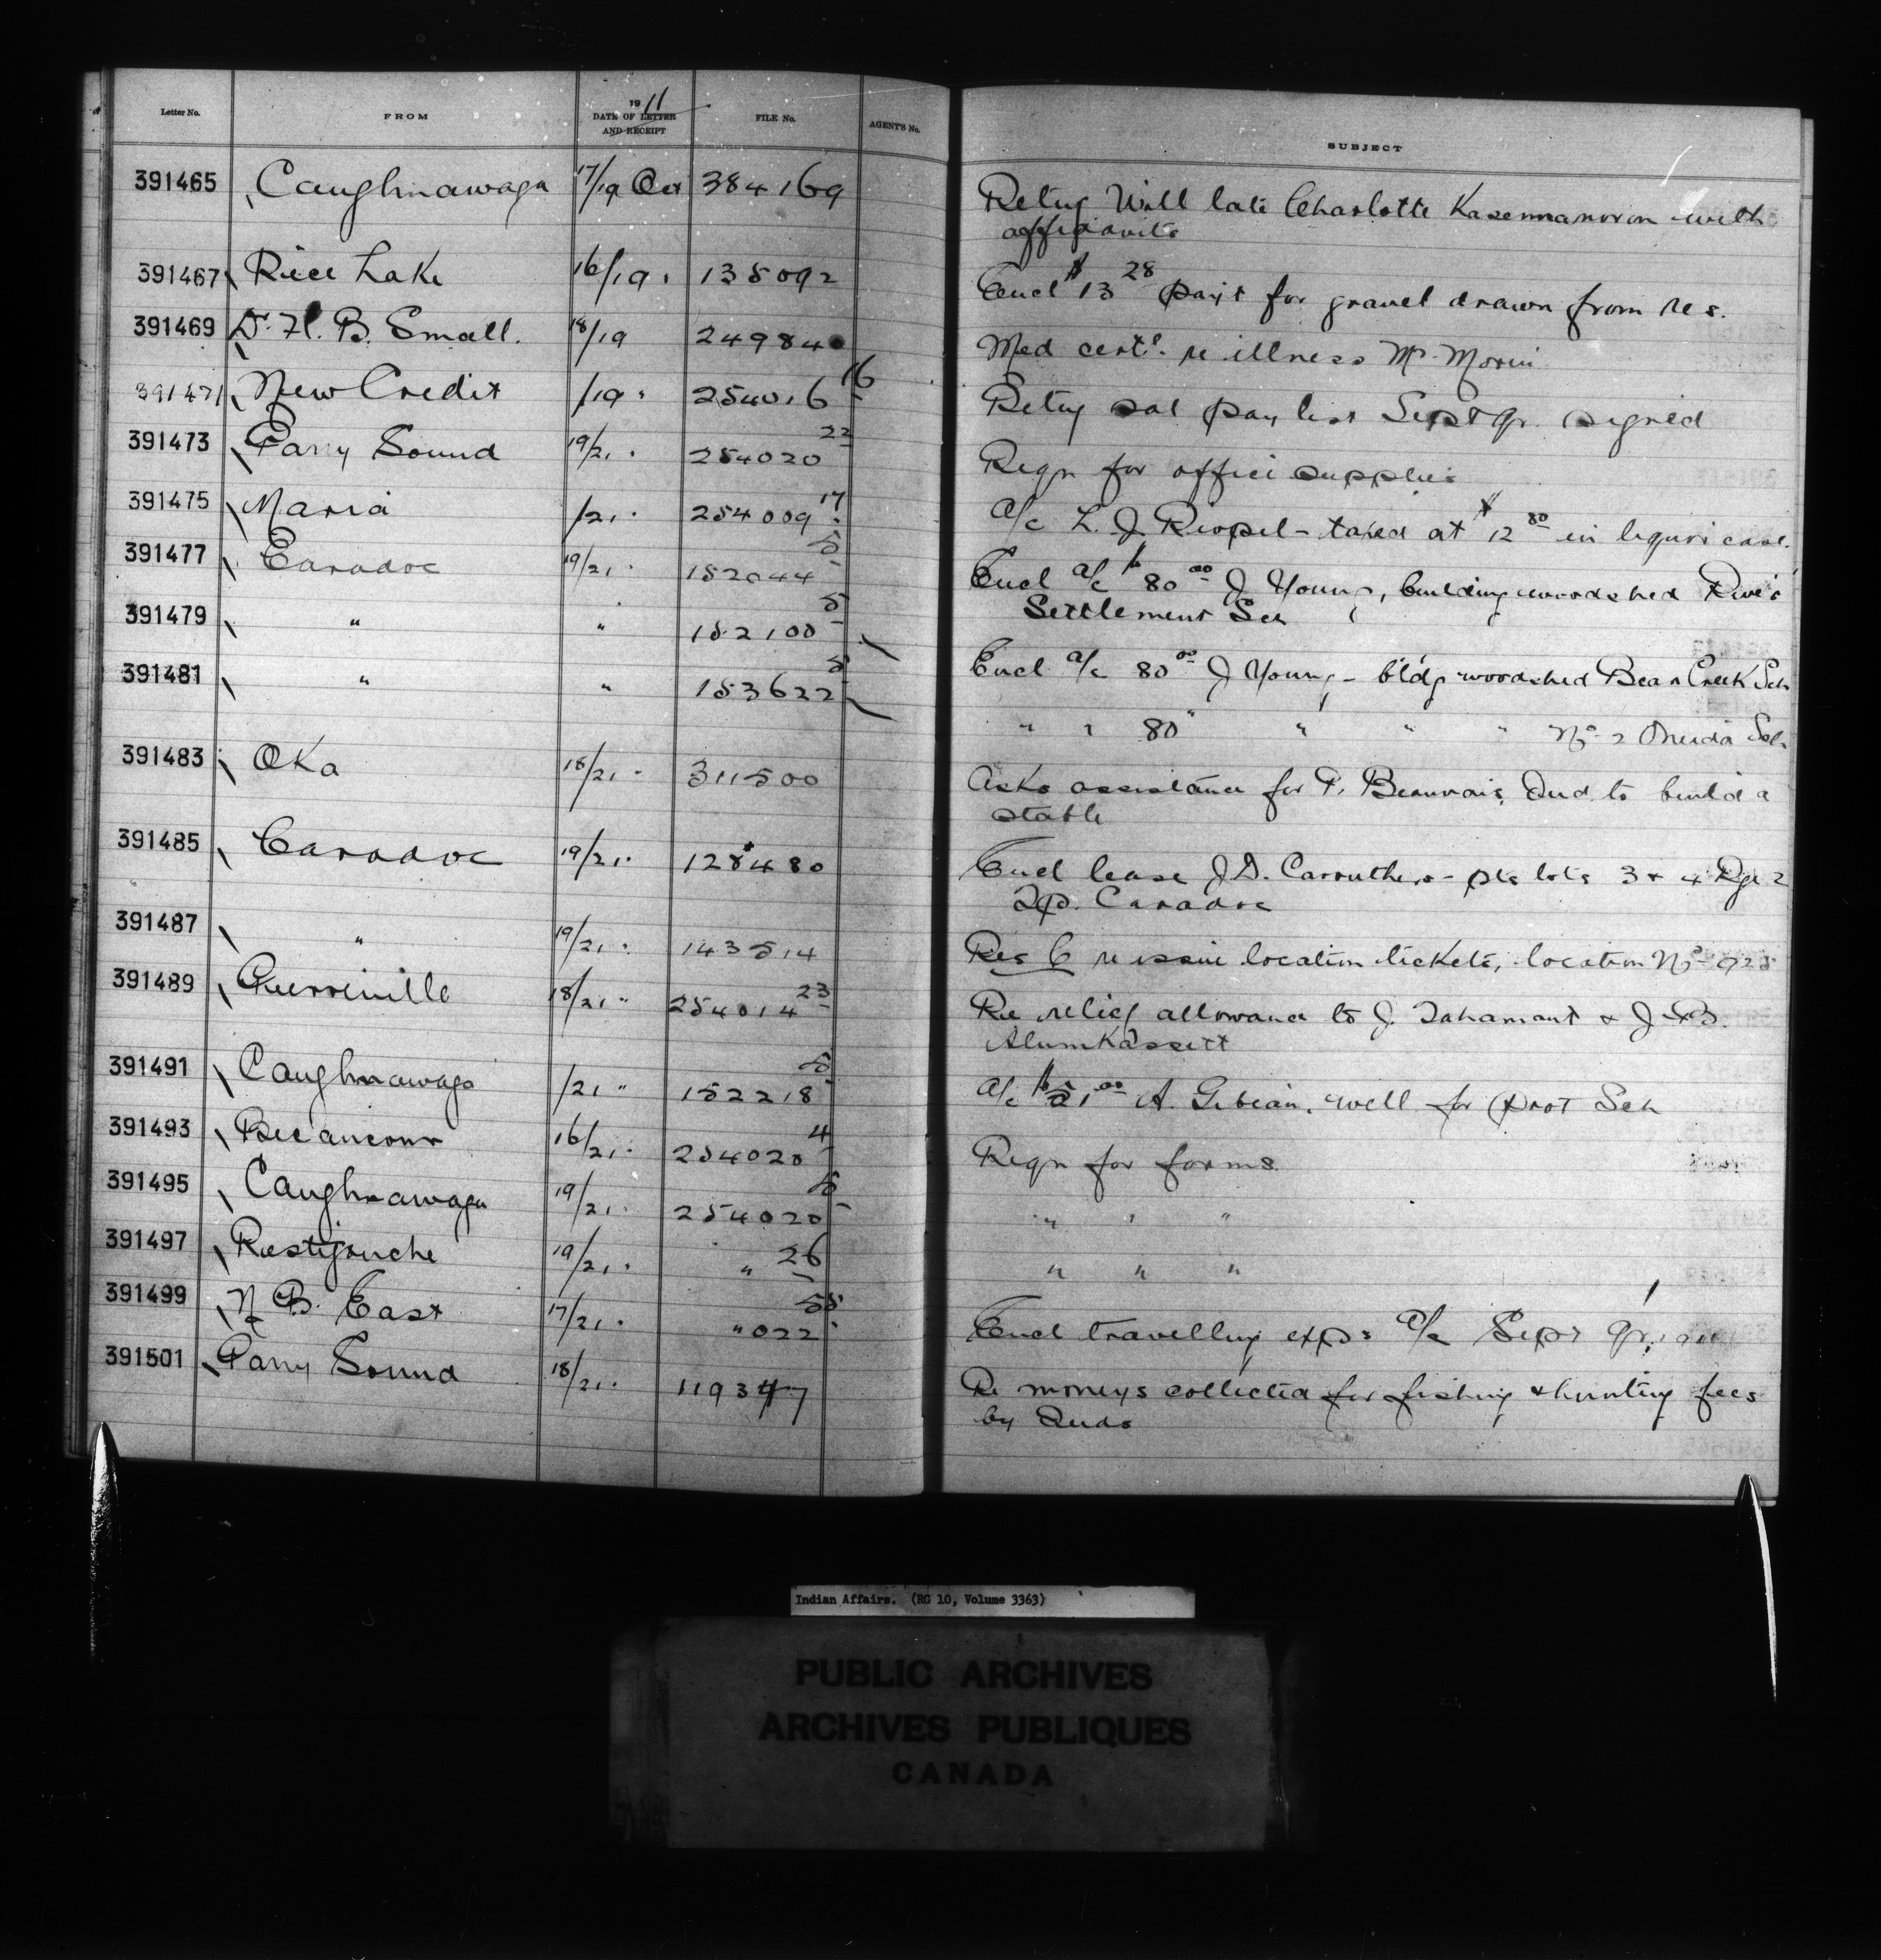 Letter No. FROM 1911 DATE OF LETTER AND RECEIPT FILE No. AGENT'S No. SUBJECT
391465 Caughnawaga 17/19 Oct 384169 Retug Will late Charlotte with
affidavits
391467 Rice Lake 16/19 " 135092 Encl $13 28 payt for gravel drawn from res.
391469 Dr. H. B. Small. 18/19 249840 Med certe. re illness Mr. Morin
391471 New Credit /19 " 254016 16 Retug sal pay list Sept qr. signed
391473 Parry Sound 19/21 " 254020 22 Reqn for office supplies
391475 Maria /21 " 254009 17 a/c L. J. Riopel - taxed at $12 80 in liquor case.
391477 Caradoc 19/21 " 152044 5 Encl a/c $80 00 J Young, building woodshed River
Settlement Sch
391479 " " 152100 5 Encl a/c 80 00 J Young - bldg woodshed Bear Creek Sch
391481 " " 153622 5 " " 80 " " " " No. 2 Oneida Sch
391483 Oka 18/21 " 311500 Asks assistance for P. Beauvais, Ind. to build a
stable
391485 Caradoc 19/21 " 128480 Encl lease J. D. Carruthers - pts lots 3 & 4 Rge 2
Tp. Caradoc
391487 " 19/21 " 143514 Res C re issue location tickets, location No. 925
391489 Pierreville 18/21 " 254014 23 Re relief allowance to J. Tahamont & J. B.
Alumkassett
391491 Caughnawaga /21 " 152218 5 a/c $51 00 A. Gibeau, well for Prot Sch
391493 Becancour 16/21 " 254020 4 Reqn for forms
391495 Caughnawaga 19/21 " 254020 5 " " "
391497 Restigouche 19/21 " " 26 " " "
391499 N. B. East 17/21 " " 022 55 Encl travelling exps a/c Sept qr,
391501 Parry Sound 18/21 " 119347 Re moneys collected for fishing & hunting fees
by Inds
Indian Affairs. (RG 10, Volume 3363)
PUBLIC ARCHIVES
ARCHIVES PUBLIQUES
CANADA